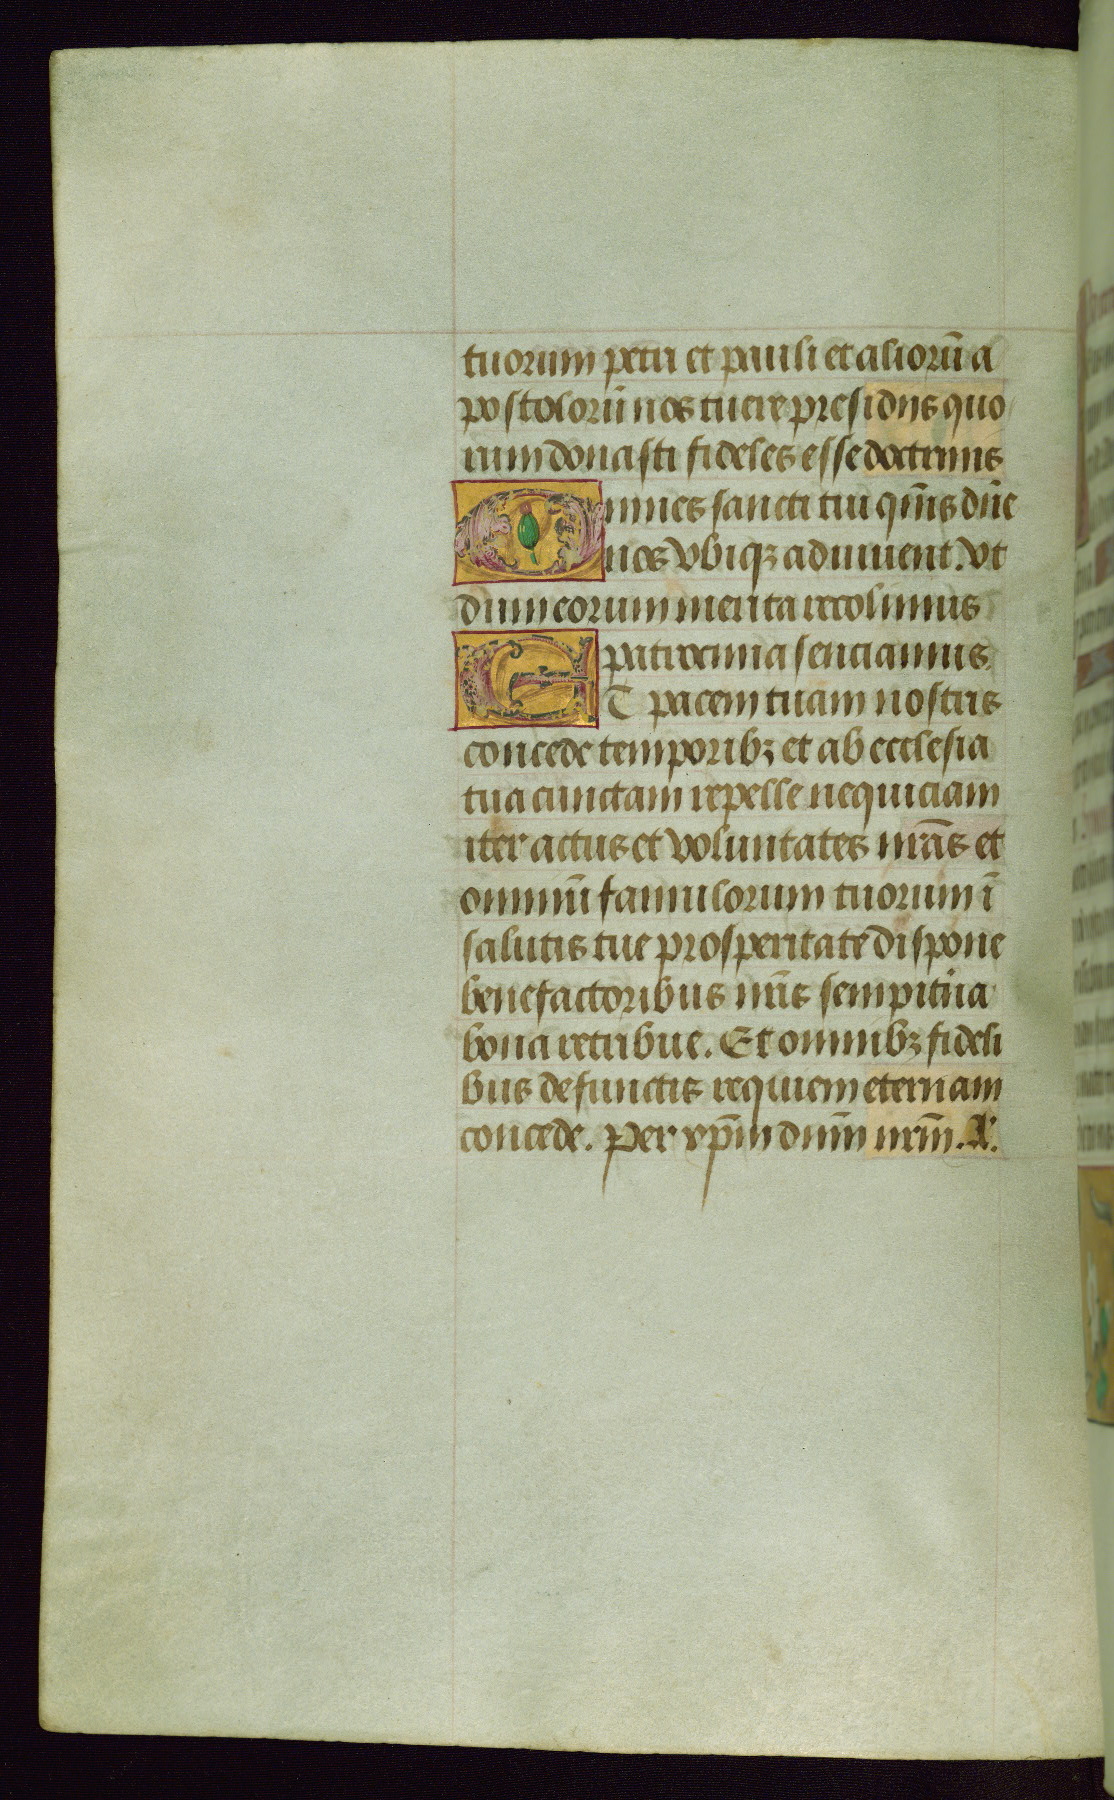 tuorum petri et pauli et aliorū a
postolorū nos tuere presidiis quo
rum donasti fideles esse doctrinis
Omnes sancti tui qm̄s dn̄e
nos vbiqꝫ adiuuent. vt
dum eorum merita recolimus
patrocinia senciamus
ET pacem tuam nostris
concede temporibꝫ et ab ecclesia
tua cunctam repelle nequiciam
iter actus et voluntates nr̄as et
omniū famulorum tuorum ī
salutis tue prosperitate dispone
benefactoribus nr̄is sempitn̄a
bona retribue. Et omnibꝫ fideli
bus defunctis requiem eternam
concede. Per xp̄m dnm̄ nrm̄. A.